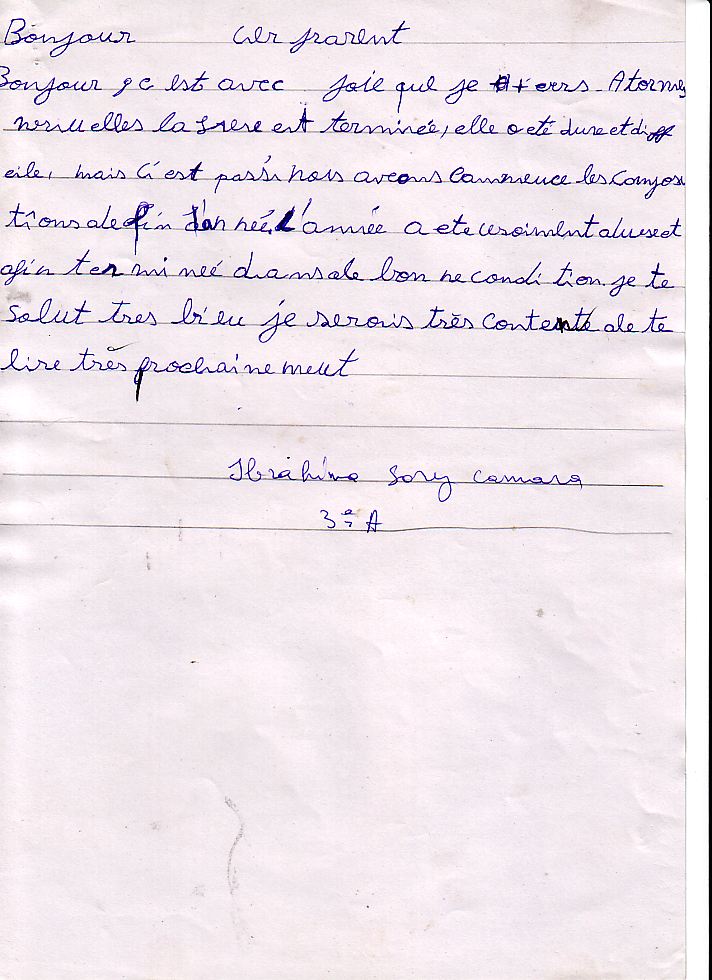 Bonjour cer parent
Bonjour, c est avec joie que je t'ecrs. A tormes
la est terminée, elle a eté dure et diff
cile, mais c'est passé nous avons Commence les Compos
tions de fin d'an neé. L'année a ete vraiment dure et
afin ter mi neé dans de bon ne condi tion. je te
Salut tres bieu je serais très contente de te
lire très prochaine meut
Ibrahima Sory camara
3e A